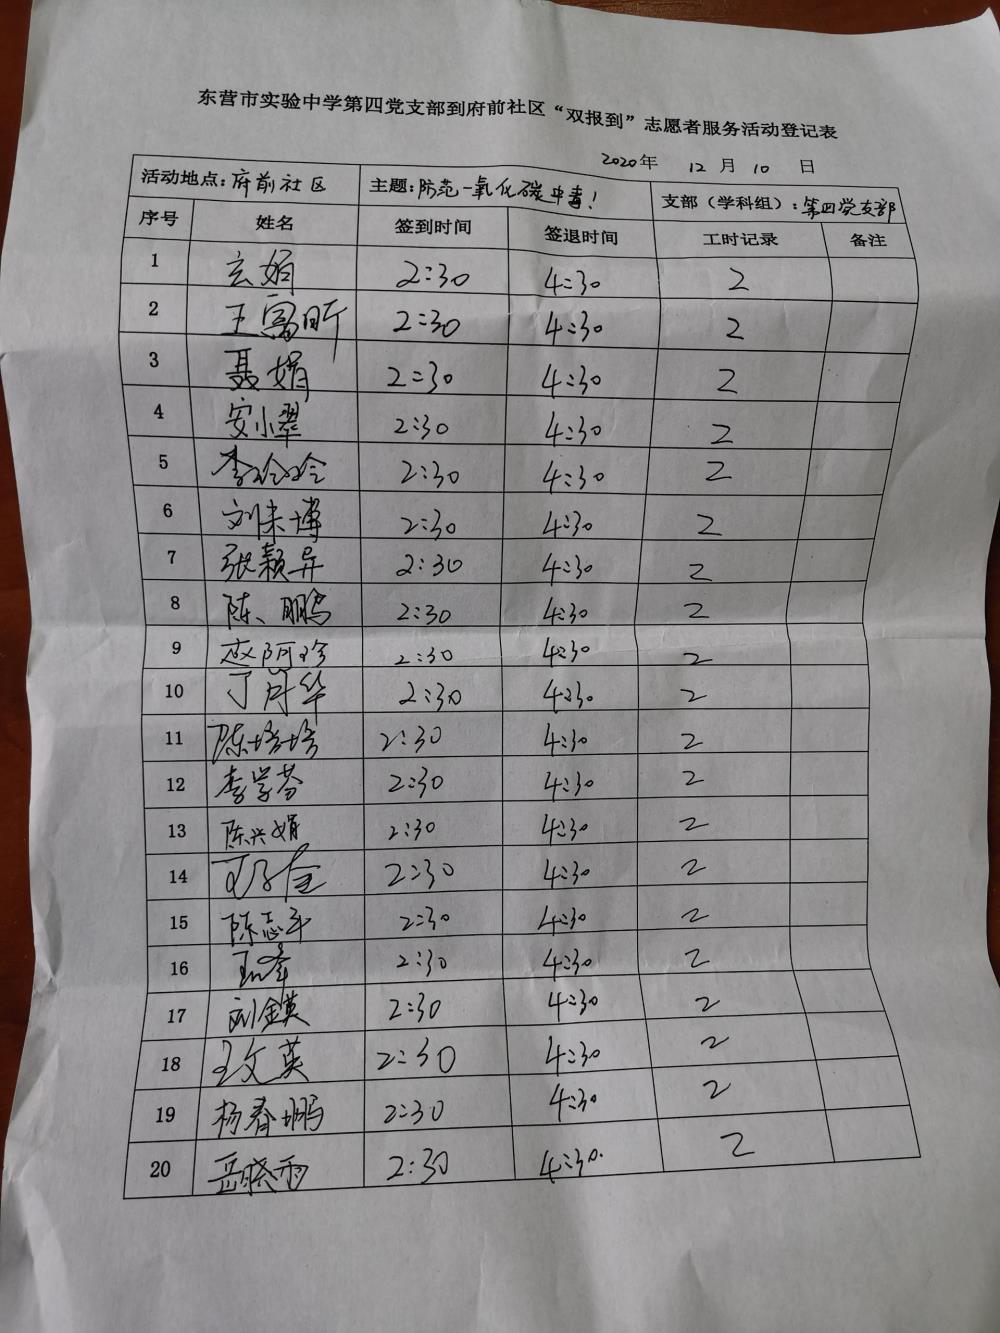 东营市实验中学第四党支部到府前社区“双报到”志愿者服务活动登记表
2020年 12月10日
活动地点:府前社区 主题:防范一氧化碳中毒! 支部(学科组):第四党支部
序号 姓名 签到时间 签退时间 工时记录 备注
1 玄娟 2:30 4:30 2
2 王富昕 2:30 4:30 2
3 聂娟 2:30 4:30 2
4 安小翠 2:30 4:30 2
5 李玲玲 2:30 4:30 2
6 刘来博 2:30 4:30 2
7 张颖异 2:30 4:30 2
8 陈、鹏 2:30 4:30 2
9 赵阿珍 2:30 4:30 2
10 丁月华 2:30 4:30 2
11 陈培培 2:30 4:30 2
12 李学芬 2:30 4:30 2
13 陈兴娟 2:30 4:30 2
14 2:30 4:30 2
15 陈志平 2:30 4:30 2
16 2:30 4:30 2
17 刘金英 2:30 4:30 2
18 王文英 2:30 4:30 2
19 杨春鹏 2:30 4:30 2
20 岳晓雨 2:30 4:30. 2